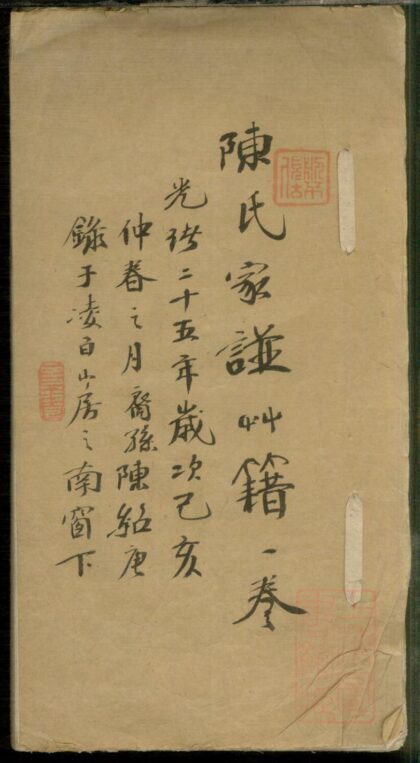 陳氏家譜艸籍一卷
光緒二十五年歲次己亥
仲春之月裔孫陳紹庚
錄于凌百山房之南窗下